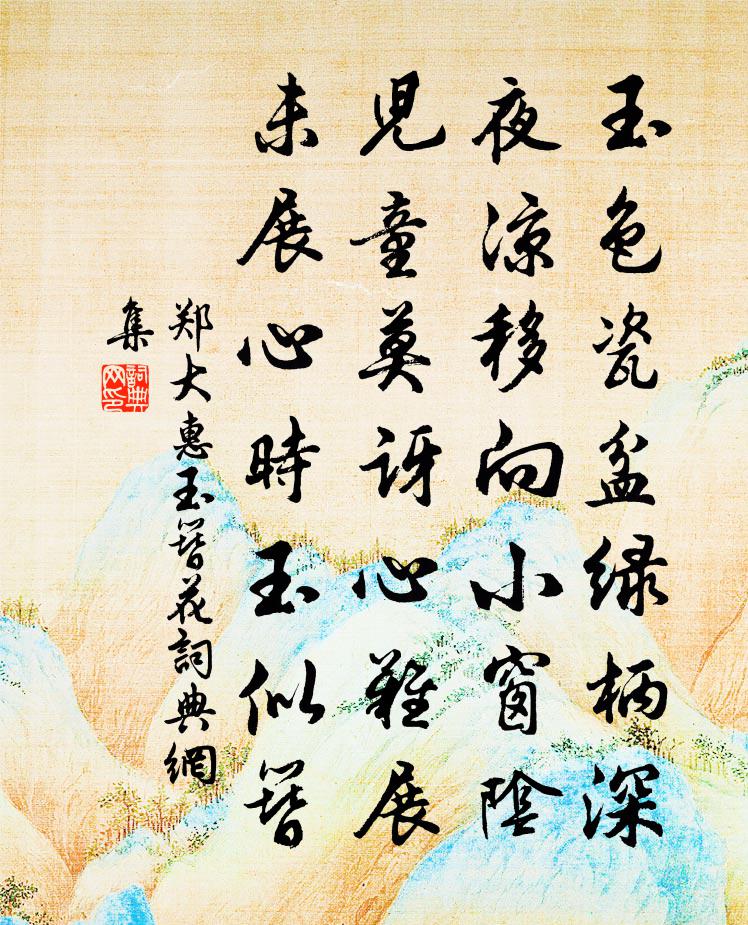 玉色瓷盆绿柄深
夜凉移向小窗阴
儿童莫讶心难展
未展心时玉似簪
郑大惠玉簪花词典网
集
词典网印